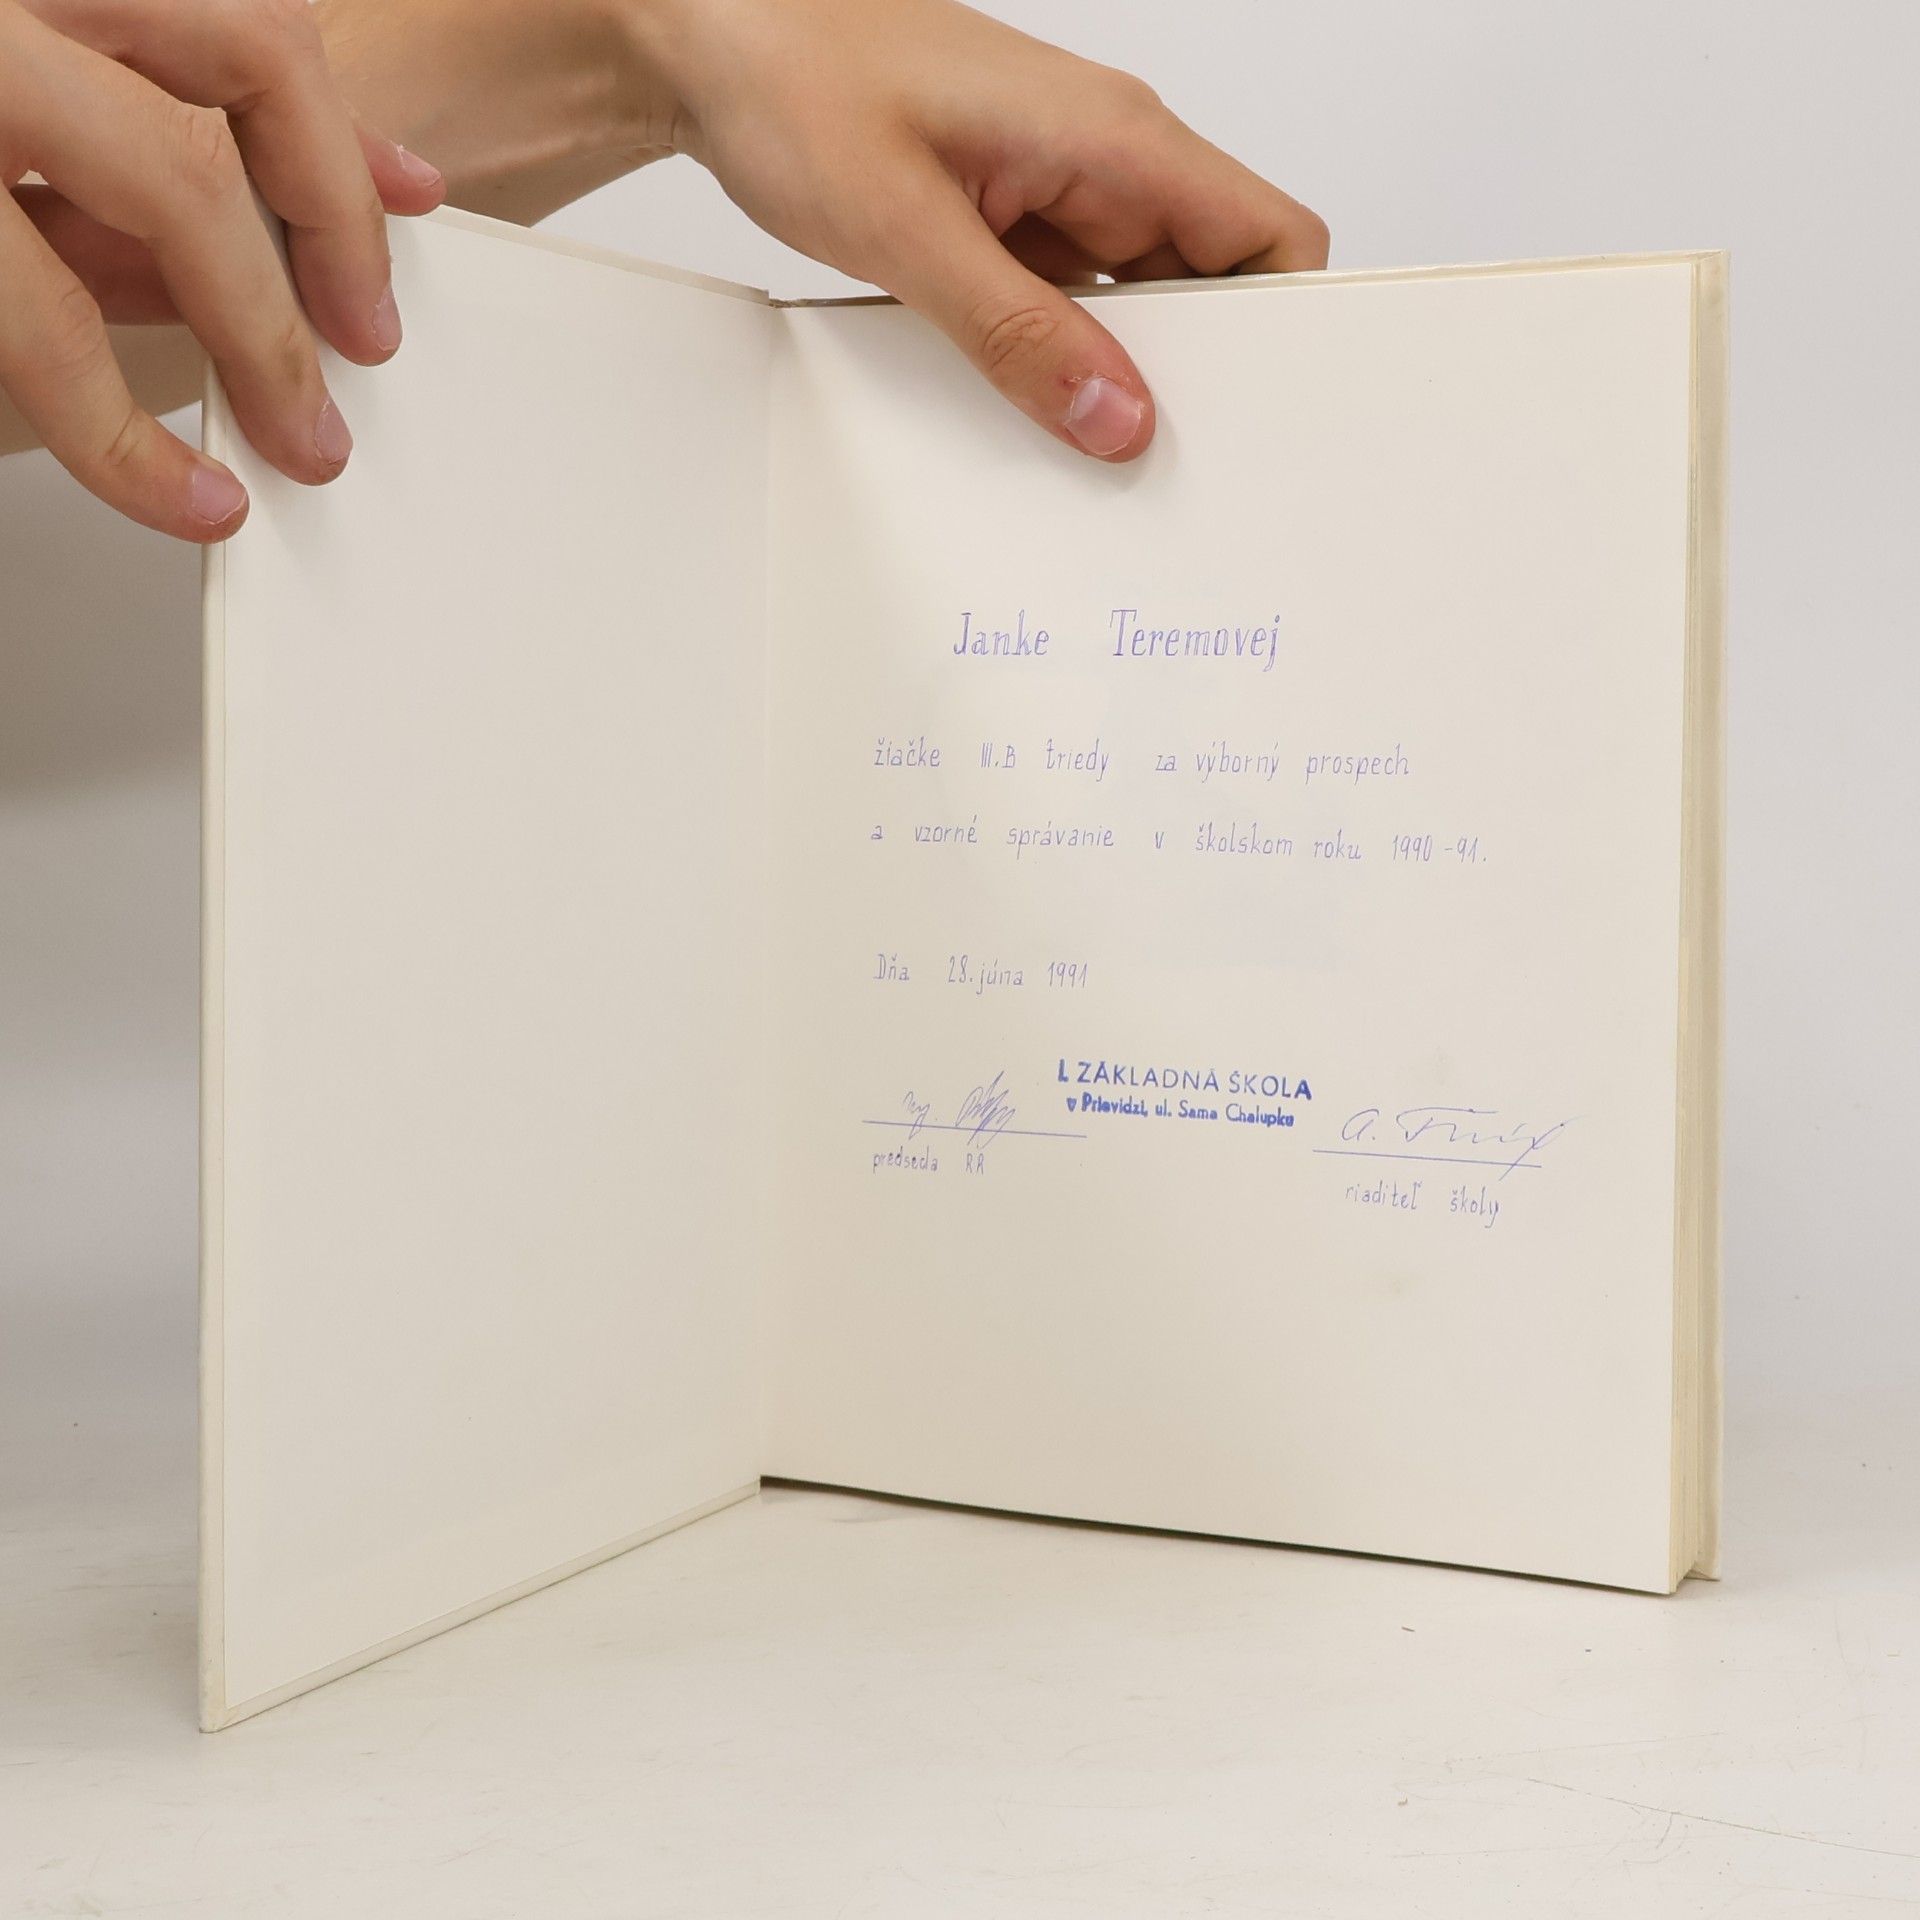 Janke Teremovej
žiačke III.B triedy za výborný prospech
a vzorné správanie v školskom roku 1990-91.
Dňa 28. júna 1991
I. ZÁKLADNÁ ŠKOLA
v Prievidzi, ul. Sama Chalupku
predseda RR
riaditeľ školy